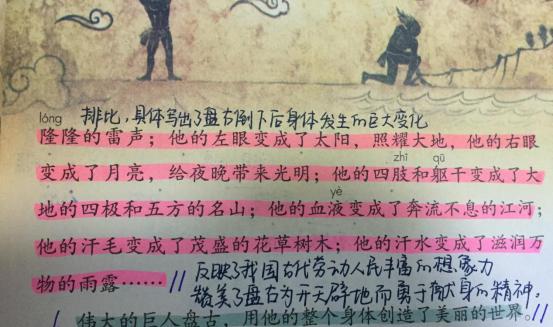 lóng 排比，具体写出了盘古倒下后身体发生的巨大变化
隆隆的雷声；他的左眼变成了太阳，照耀大地，他的右眼
zhī qū
变成了月亮，给夜晚带来光明；他的四肢和躯干变成了大
yè
地的四极和五方的名山；他的血液变成了奔流不息的江河；
他的汗毛变成了茂盛的花草树木；他的汗水变成了滋润万
物的雨露……// 反映了我国古代劳动人民丰富的想象力
赞美了盘古为开天辟地而勇于献身的精神。
伟大的巨人盘古，用他的整个身体创造了美丽的世界。//